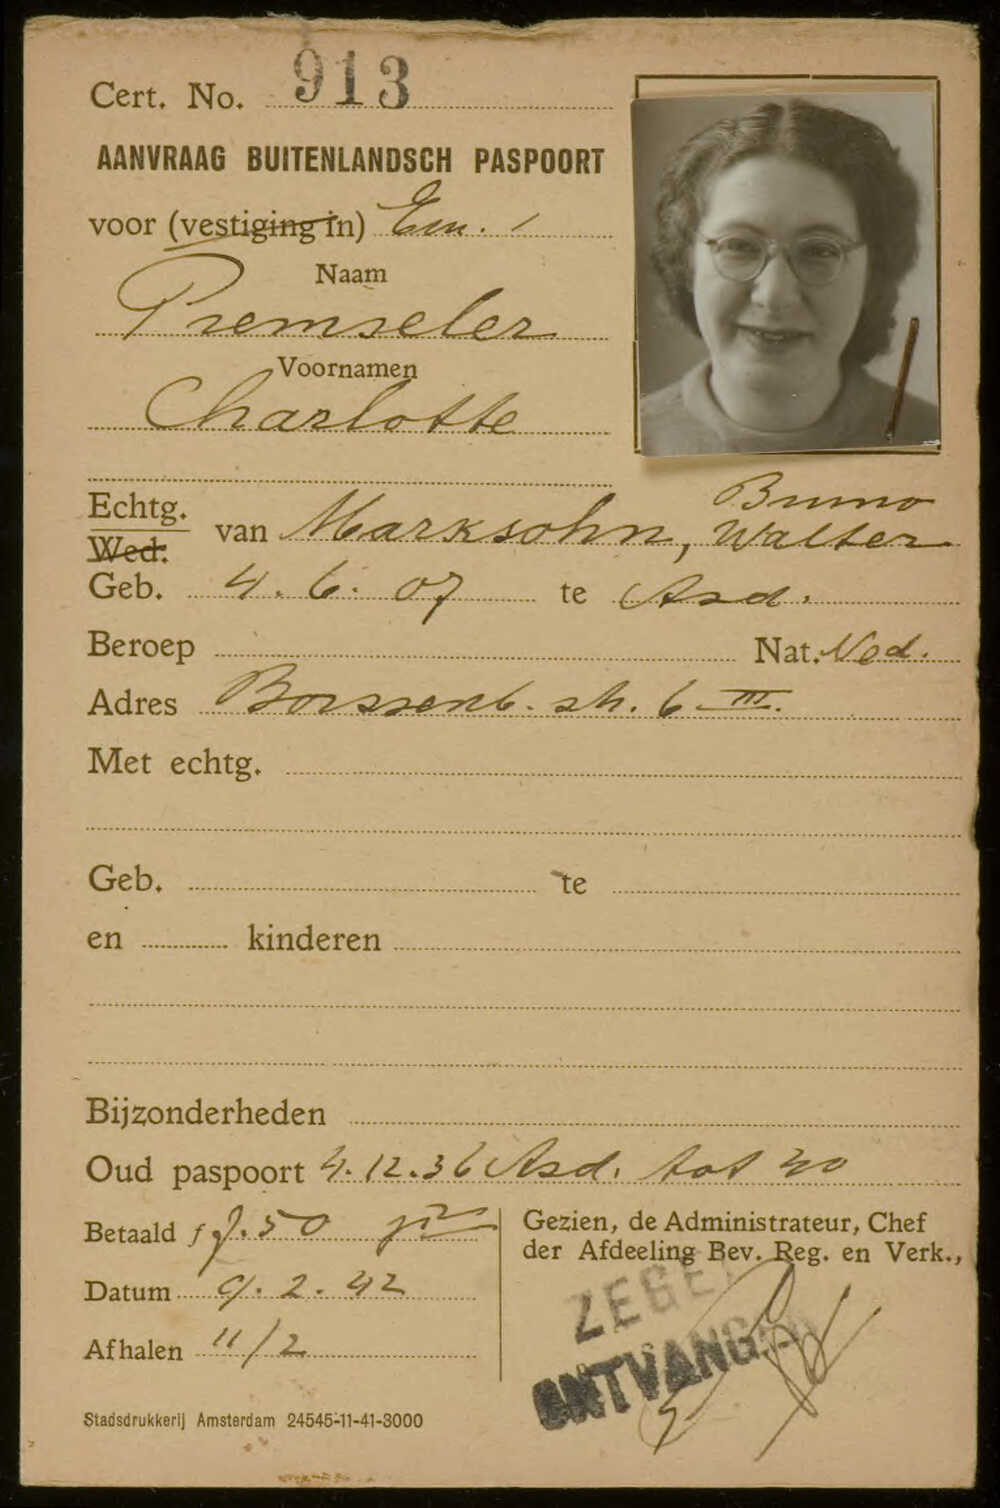 Cert. No. 913
AANVRAAG BUITENLANDSCH PASPOORT
voor (vestiging in) Em. 1
Naam
Premseler
Voornamen
Charlotte
Echtg.
Wed.
van Marksohn, Bruno Walter
Geb. 4. 6. 07 te Asd.
Beroep Nat. Ned.
Adres Borssenb. str. 6 III.
Met echtg.
Geb. te
en kinderen
Bijzonderheden
Oud paspoort 4.12.36 Asd. tot 40
Betaald f 7.50
Datum 9. 2. 42
Afhalen 11/2
Gezien, de Administrateur, Chef
der Afdeeling Bev. Reg. en Verk.,
ZEGEL
ONTVANGEN
Stadsdrukkerij Amsterdam 24545-11-41-3000